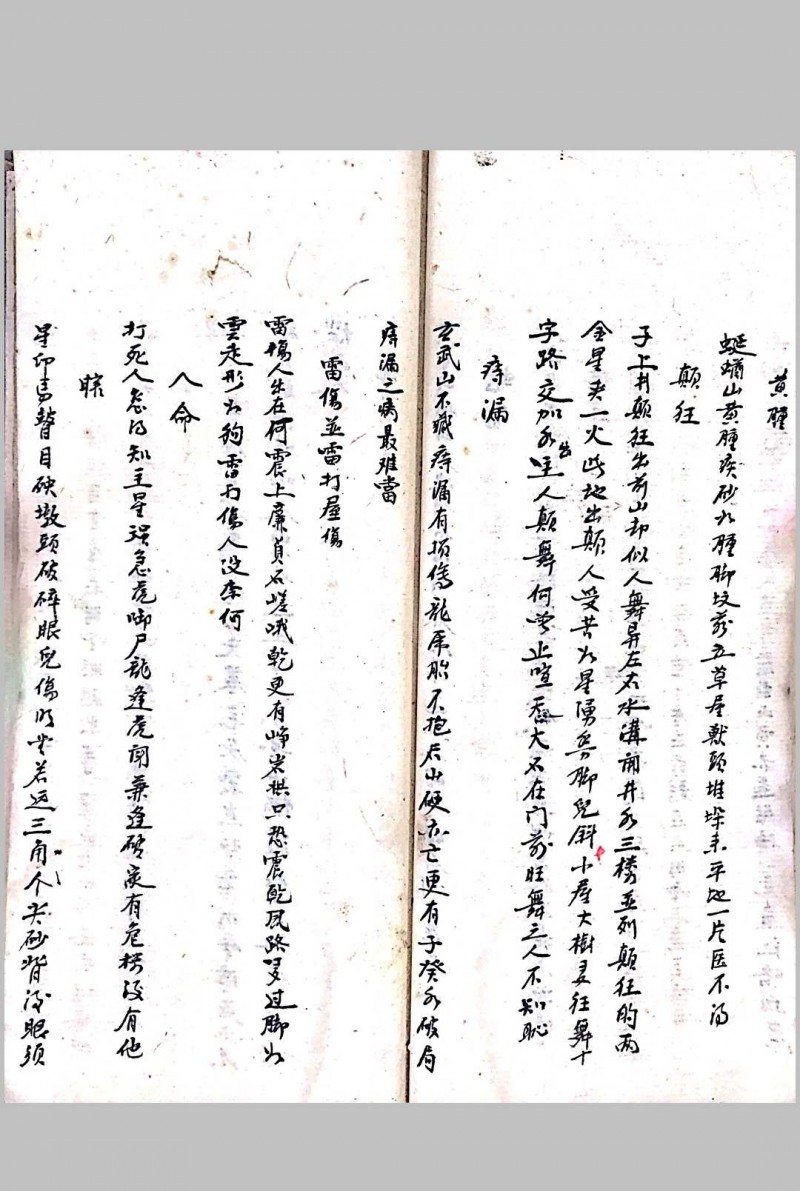 黄腫
山黄腫疾砂水腫脚坟前五草屋獸頭堆堁未平地一片医不得
颠狂
子上井颠狂出前山却似人舞昇左右水溝前井水三楼並列颠狂的両
金星夹一火此地出颠人受苦水星湧脚兒斜小屋大樹狂舞十
字路交加水出主人颠舞何止喧大石在门前旺舞之人不知恥
痔漏
玄武山不藏痔漏有損傷龍虎胎不抱后山硬亦亡更有子癸水破局
痔漏之病最难當
雷傷並雷打屋傷
雷傷人坐在何震上廉貞石嵯峨乾更有峥岩拱只恐震乾風路過脚如
雲走形如钩雷打傷人没奈何
人命
打死人怎得知主星误怠虎啣尸龍逢虎開兼逢破定有危楼没有他
瞎
星印為瞽目硖墩頭破碎眼兒傷明堂若迈三角个尖砂背後眼须